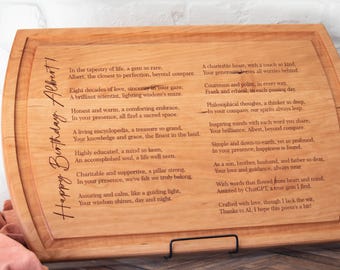 Happy Birthday Albert!
In the tapestry of life, a gem so rare,
Albert, the closest to perfection, beyond compare.
Eight decades of love, sincerest in your gaze,
A brilliant scientist, lighting wisdom's maze.
Honest and warm, a comforting embrace,
In your presence, all find a sacred space.
A living encyclopedia, a treasure so grand,
Your knowledge and grace, the finest in the land.
Highly educated, a mind so keen,
An accomplished soul, a life well seen.
Charitable and supportive, a pillar strong,
In your presence, we've felt we truly belong.
Assisting and calm, like a guiding light,
Your wisdom shines, day and night.
A charitable heart, with a touch so kind,
Your generosity all worries behind.
Courteous and polite, in every way,
Frank and ethical, in each passing day.
Philosophical thoughts, a thinker so deep,
In your company, our spirits leap.
Inspiring minds with each word you share,
Your brilliance, Albert, beyond compare.
Simple and down-to-earth, yet so profound,
In your presence, happiness is found.
As a son, brother, husband, and father so dear,
Your love and guidance, always near.
With words that flowed from heart and mind,
Assisted by ChatGPT, a true gem I find.
Crafted with love, though I lack the wit,
Thanks to AI, I hope this poem's a hit!